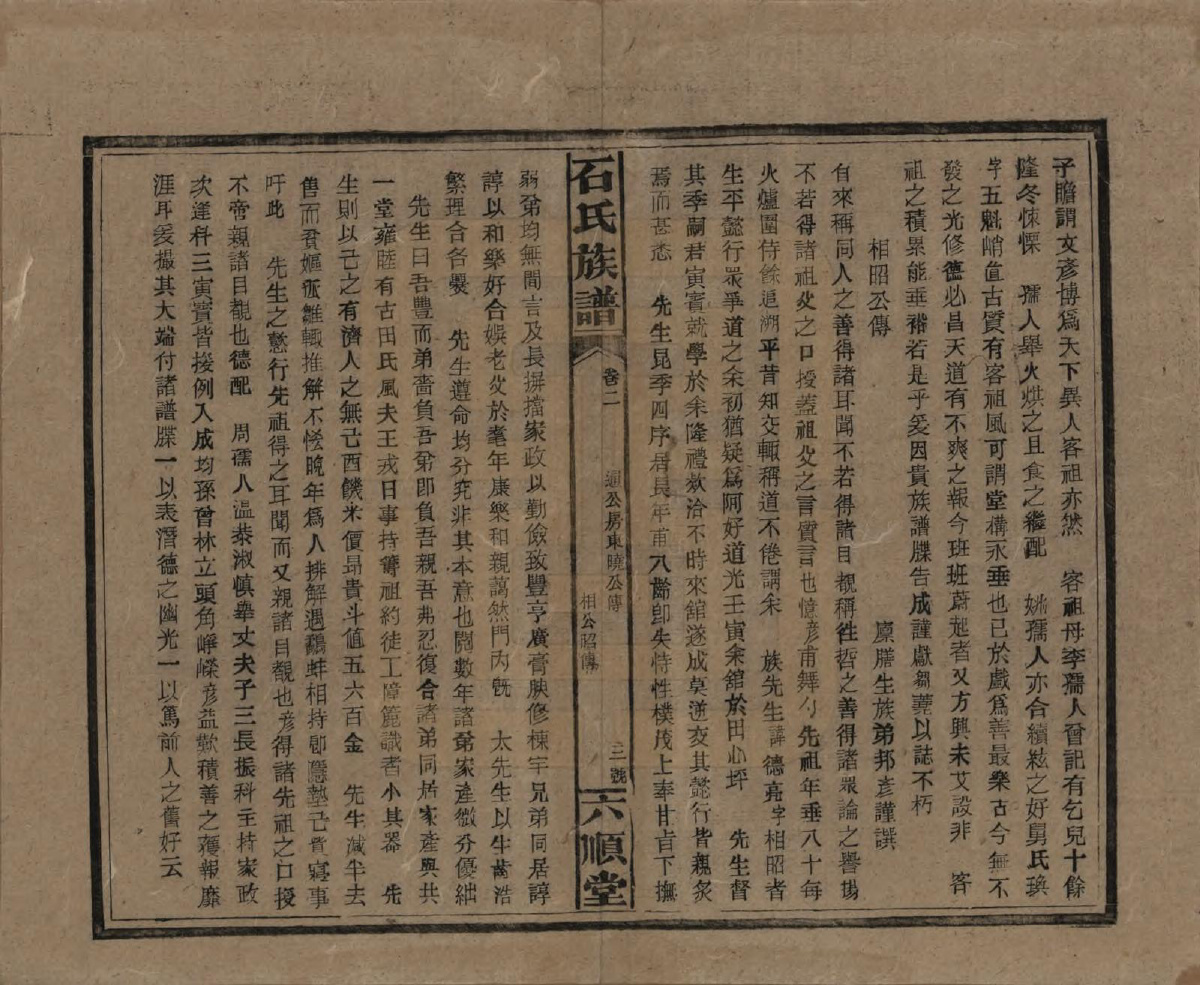 子瞻謂文彥博爲天下異人客祖亦然　客祖母李孺人曾記有乞兒十餘
隆冬悚慄　孺人舉火烘之且食之繼配　姚孺人亦合續絃之好舅氏瑛
字五魁峭值古質有客祖風可謂堂構永垂也已於戲爲善最樂古今無不
發之光修德必昌天道有不爽之報今班班蔚起者又方興未艾設非　客
祖之積累能垂裕若是乎爰因貴族譜牒告成謹獻芻蕘以誌不朽
相昭公傳　廪膳生族弟邦彥謹譔
自來稱同人之善得諸耳聞不若得諸目覩稱徃哲之善得諸眾論之譽揚
不若得諸祖父之口授蓋祖父之言質言也憶彥甫舞勺先祖年垂八十每
火爐圍侍餘追溯平昔知交輒稱道不倦謂余　族先生諱德亮字相昭者
生平懿行眾爭道之余初猶疑爲阿好道光壬寅余舘於田心坪　先生督
其季嗣君寅賓就學於余隆禮欵洽不時來舘遂成莫逆交其懿行皆親炙
焉而甚悉　先生昆季四序居長年甫八齡卽失恃性樸茂上奉甘旨下撫
石氏族譜　卷二　通公房東曉公傳　相公昭傳　三號　六順堂
弱弟均無間言及長摒擋家政以勤儉致豐亨廣膏腴修棟宇兄弟同居諄
諄以和樂好合娛老父於耄年康樂和親藹然門內旣　太先生以年齒浩
繁理合各爨　先生遵命均分究非其本意也閱數年諸弟家產微分優絀
先生曰吾豐而弟嗇負吾弟卽負吾親吾弗忍復合諸弟同居家產與共
一堂雍睦有古田氏風夫王戎日事持籌祖約徒工障簏識者小其器　先
生則以己之有濟人之無己酉饑米價昻貴斗值五六百金　先生減半去
售而貧嫗孤雛輒推解不恡晚年爲人排解遇鷸蚌相持卽隱墊己貲寢事
吁此　先生之懿行先祖得之耳聞而又親諸目覩也彥得諸先祖之口授
不啻親諸目覩也德配　周孺人溫恭淑慎舉丈夫子三長振科主持家政
次逢科三寅賓皆接例入成均孫曾林立頭角崢嶸彥益歎積善之獲報靡
涯耳爰撮其大端付諸譜牒一以表潛德之幽光一以篤前人之舊好云